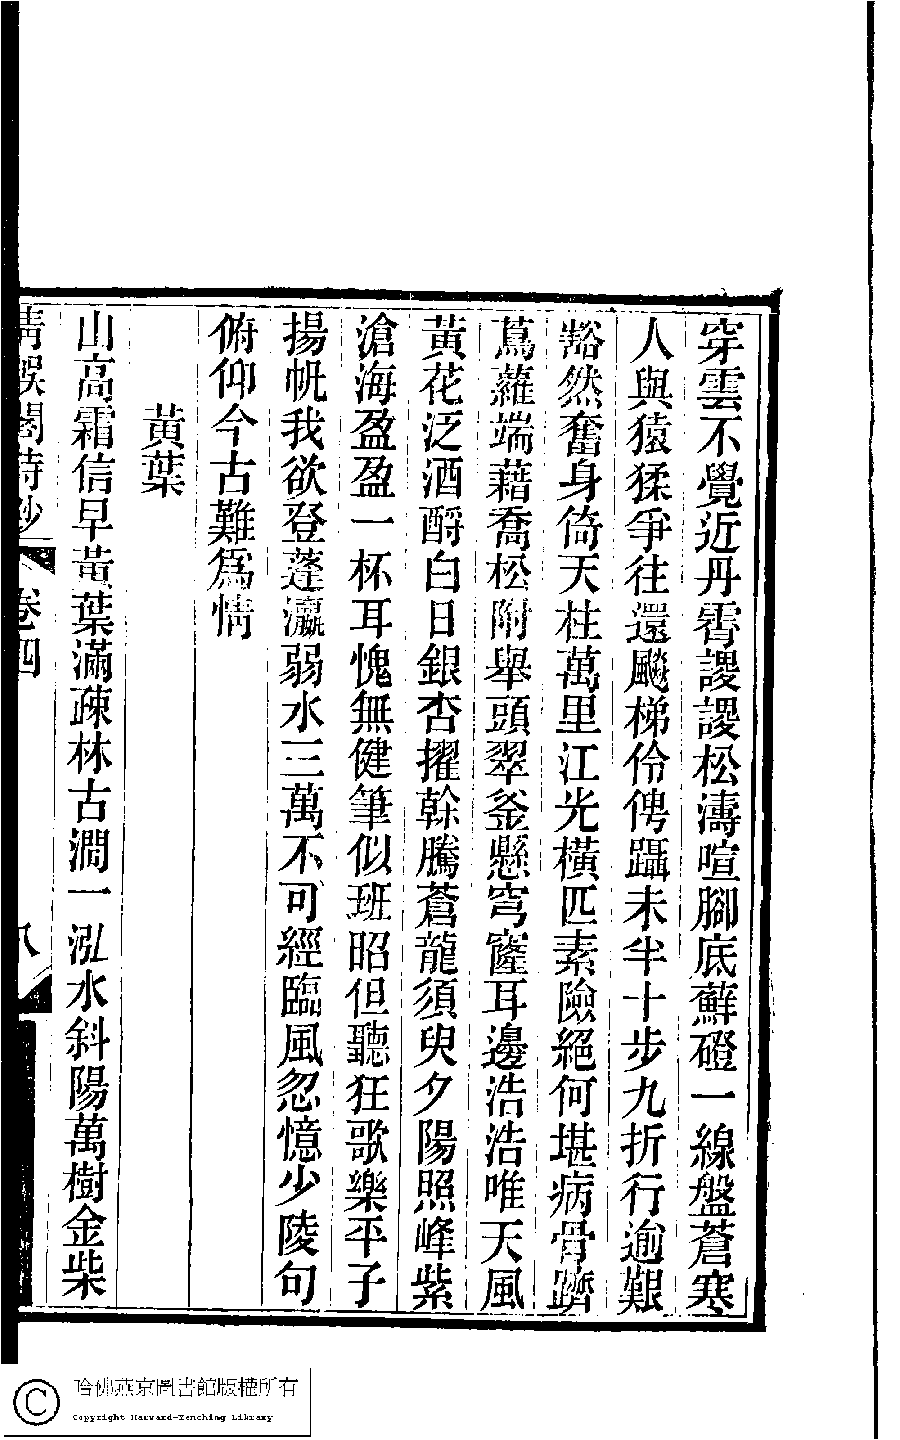 穿雲不覺近丹霄謖謖松濤喧腳底蘚磴一線盤蒼寒
人與猿猱爭往還飈梯伶俜躡未半十步九折行逾艱
豁然奮身倚天柱萬里江光橫匹素險絕何堪病骨躋
蔦蘿端藉喬松附舉頭翠釜懸穹窿耳邊浩浩唯天風
黃花泛酒酹白日銀杏擢榦騰蒼龍須臾夕陽照峰紫
滄海盈盈一杯耳愧無健筆似班昭但聽狂歌樂平子
揚帆我欲登蓬瀛弱水三萬不可經臨風忽憶少陵句
俯仰今古難爲情
黃葉
山高霜信早黃葉滿疎林古澗一泓水斜陽萬樹金柴
清娛閣詩鈔
卷四
八
哈佛燕京圖書館版權所有
Copyright Harvard-Yenching Library